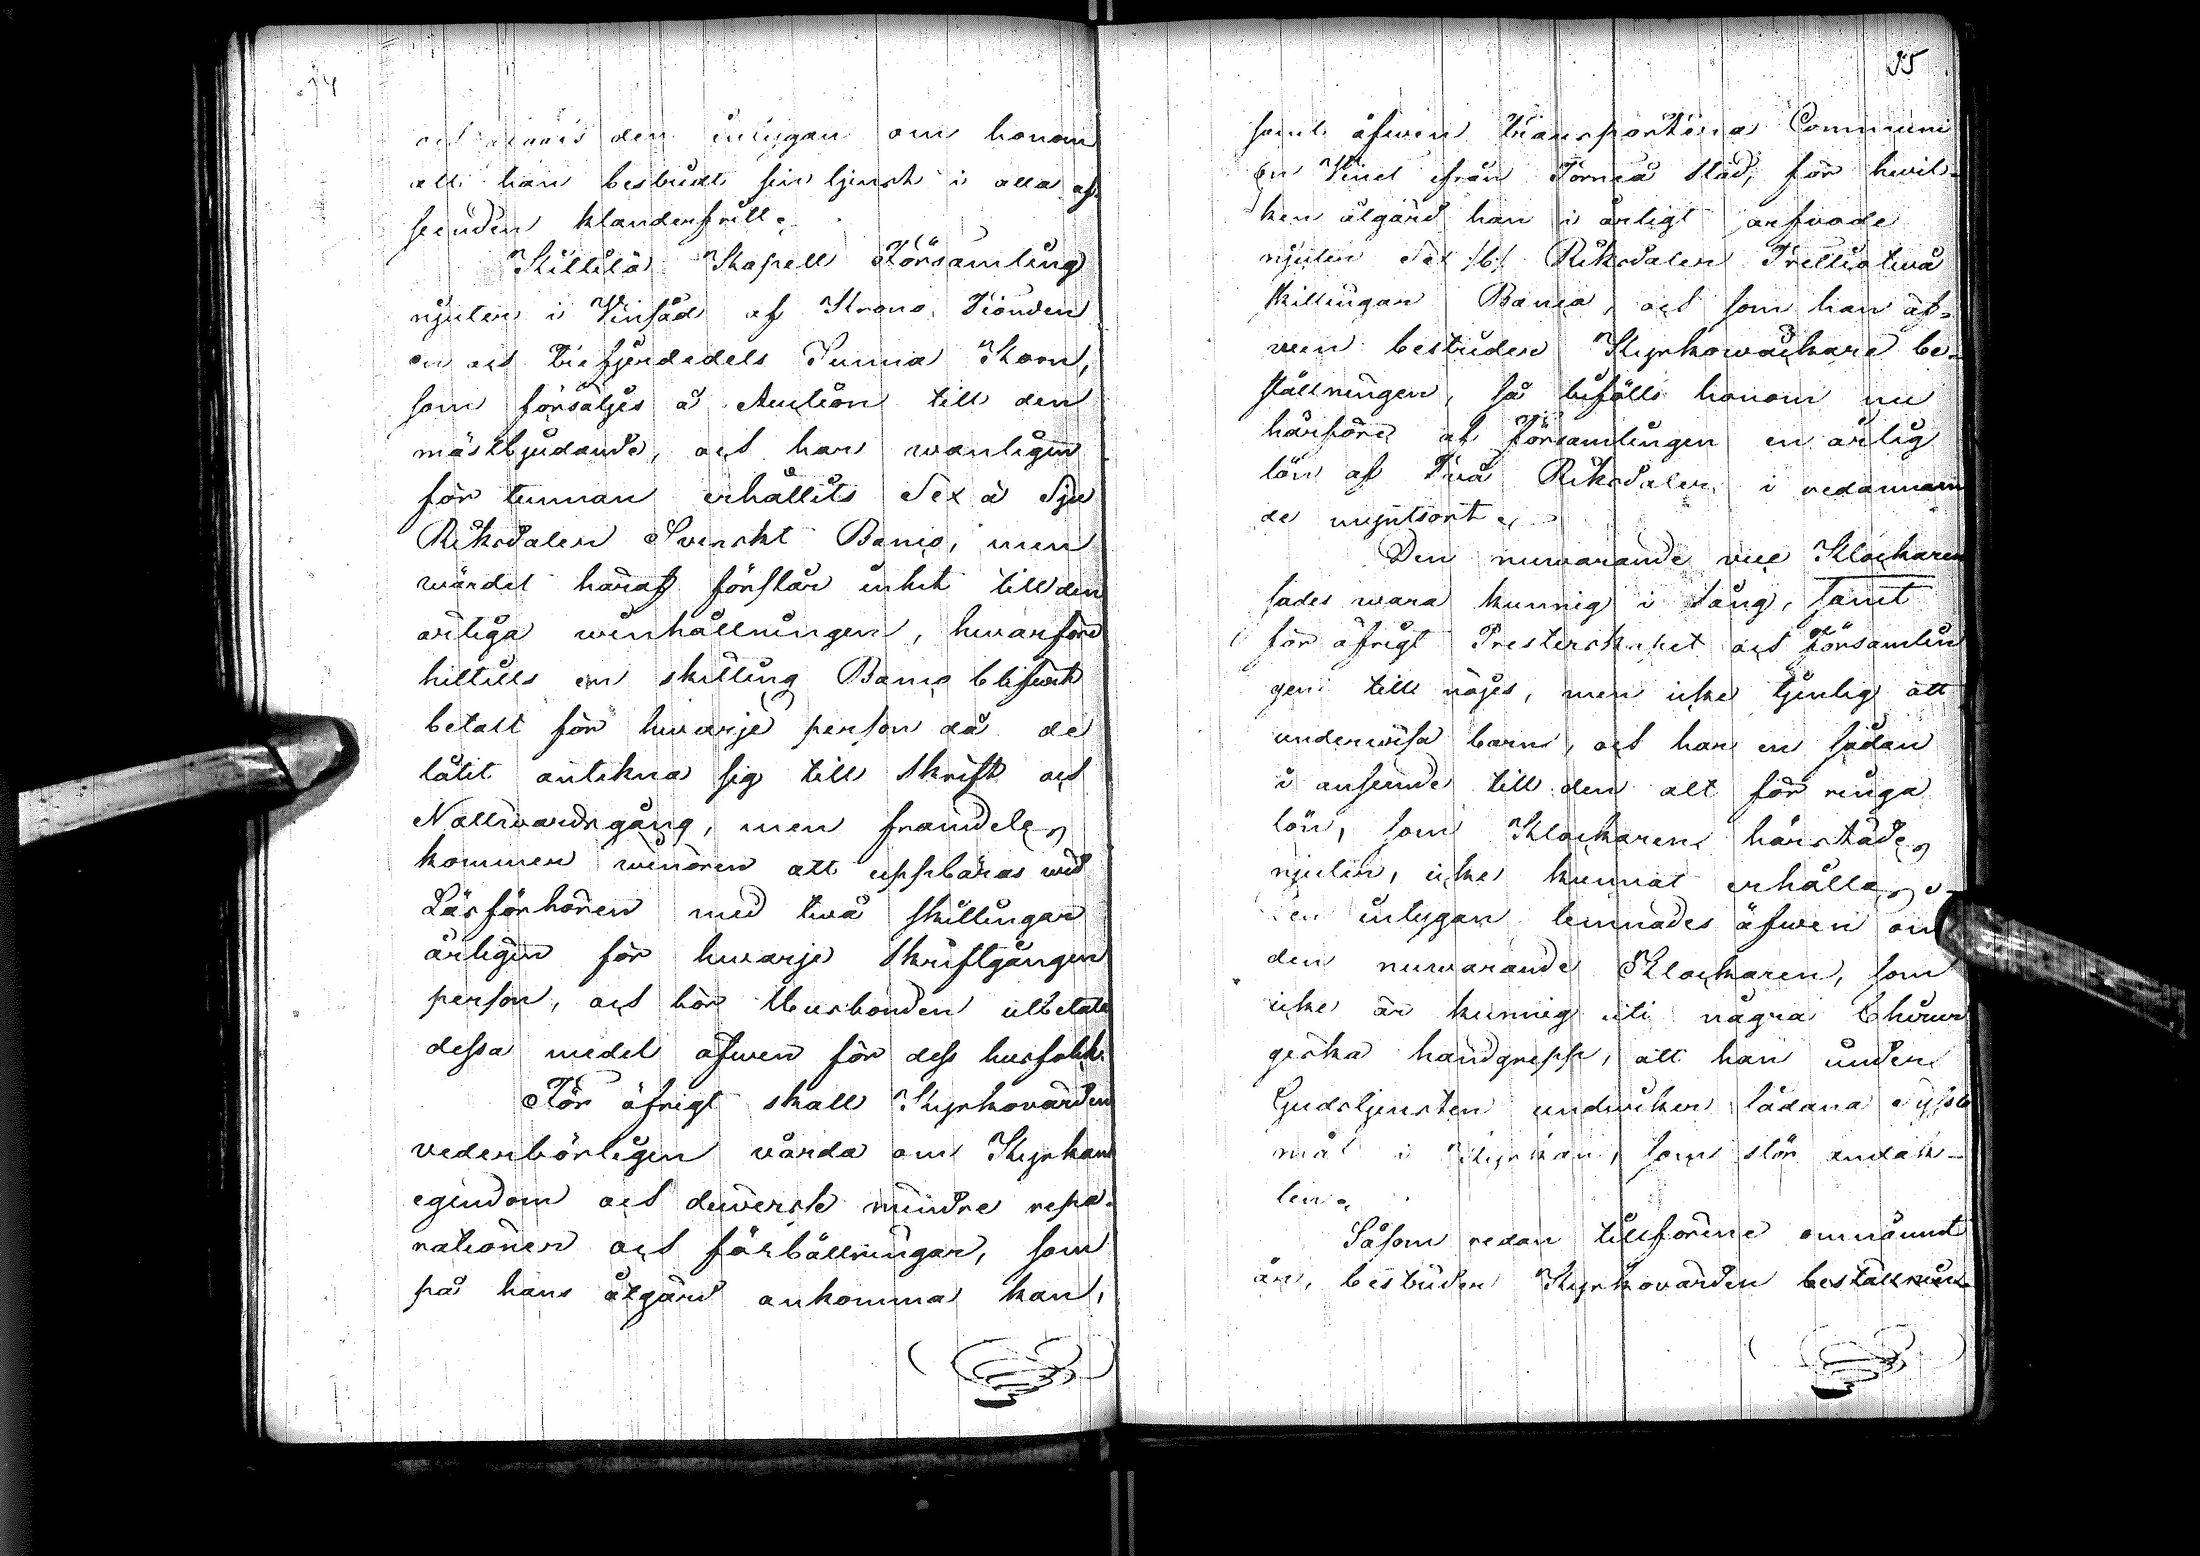 14
den intygan om honom
att han bestridt sin tjenst i alla af-
seenden klanderfritt.
Kittilä Kapell Församling
njuter i Vinsäd af Krono Tionden
en och trefjerdedels Tunna Korn,
som försäljes å Auction till den
mästbjudande, och har wanligen
för tunnan erhållits Sex à Sju
Riksdaler Svenskt Banco, men
wärdet häraf förslår intet till den
årliga winhållningen, hwarföre
hittills en skilling Banco blifwit
betalt för hwarje person då de
låtit antekna sig till Skrift och
Nattwardsgång, men framdeles
kommer winören att uppbäras wid
Läsförhören med twå skillingar
årligen för hwarje Skriftgången
person, och bör Husbonden utbetala
dessa medel äfwen för dess husfolk.
För öfrigt skall Kyrkovärden
vederbörligen vårda om Kyrkans
egendom och diverse mindre repa-
rationer och förbättringar, som
på hans åtgärd ankomma kan,
55
samt äfwen transportera Communi
on Vinet ifrån Torneå Stad, för hwil-
ken åtgärd han i årligt arfvode
njuter Sex /6/ Riksdaler Trettiotwå
skillingar Banco, och som han äf-
wen bestrider Kyrkowäckare be-
ställningen, så bifölls honom nu
härföre af Församlingen en årlig
lön af Twå Riksdaler i nedannäm
de myntsort.
Den nuvarande vice Klockaren
sades wara kunnig i Sång, samt
för öfrigt Presterskapet och Församlin
gen till nöjes, men icke tjenlig att
underwisa barn, och har en sådan
i anseende till den alt för ringa
lön, som Klockaren härstädes
njuter, icke kunnat erhållas.
intygan lemnades äfwen om
den nuwarande Klockaren, som
icke är kunnig uti några Chirur
giska handgrepp, att han under
Gudstjensten undwiker sådana Syssle
mål i Kyrkan, som stör andak-
ten.
Såsom redan tillförene omnämnt
är, bestrider Kyrkovärden beställnin